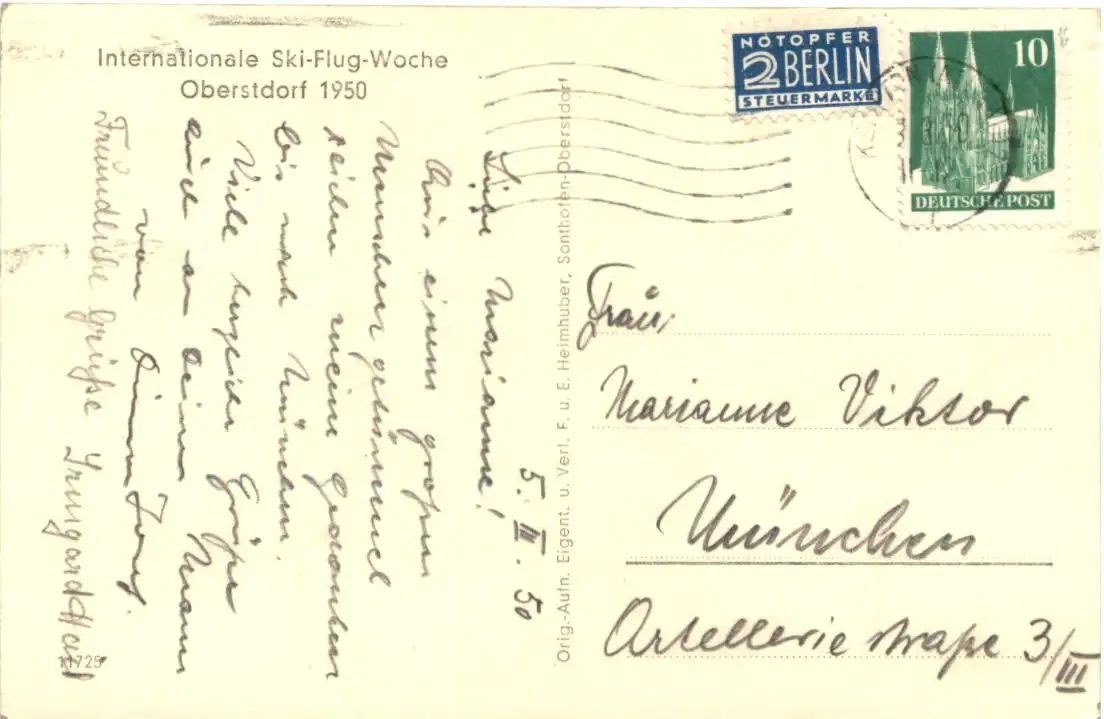 Internationale Ski-Flug-Woche
Oberstdorf 1950
5. III. 50
Liebe Marianne!
Aus einem großen
Menschengetümmel
reichen meine Gedanken
bis nach München.
Viele herzliche Grüße
auch an Deinen Mann
von Deinem
Freundliche Grüße Irmgard
11725
Orig.-Aufn. Eigent. u. Verl. F. u. E. Heimhuber, Sonthofen-Oberstdorf
NOTOPFER
2 BERLIN
STEUERMARKE
10
DEUTSCHE POST
Frau
Marianne Viktor
München
Artelleriestraße 3/III